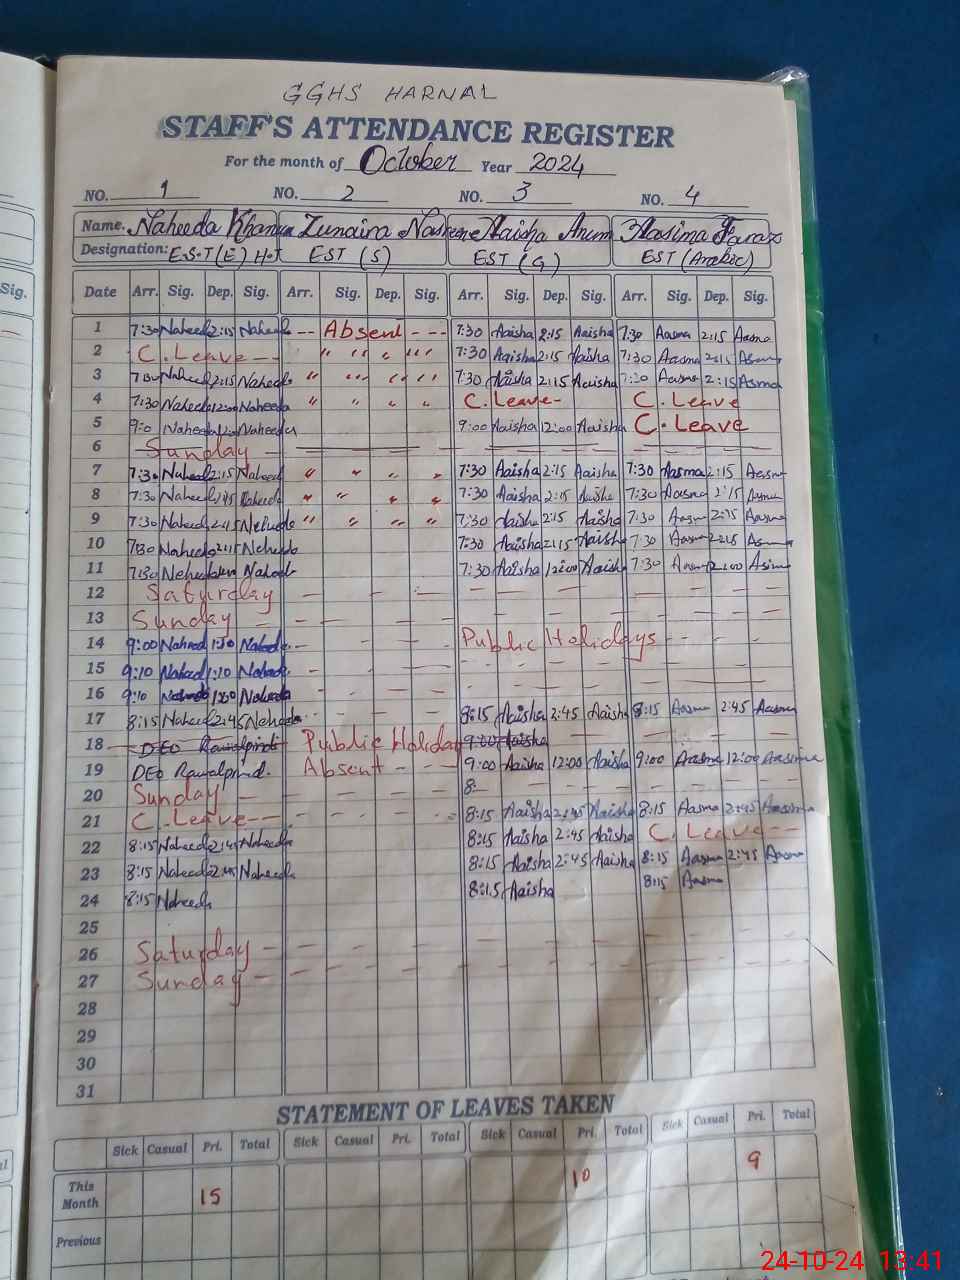 GGHS HARNAL
STAFF'S ATTENDANCE REGISTER
For the month of October Year 2024
NO. 1 NO. 2 NO. 3 NO. 4
Name. Naheeda Khanum Zunaira Nasreen Aaisha Anum Aasima Faraz
Designation: E.S.T (E) H.T EST (S) EST (G) EST (Arabic)
Sig. Date Arr. Sig. Dep. Sig. Arr. Sig. Dep. Sig. Arr. Sig. Dep. Sig. Arr. Sig. Dep. Sig.
1 7:30 Naheed 2:15 Naheed -- Absent --- 7:30 Aaisha 2:15 Aaisha 7:30 Aasma 2:15 Aasma
2 C. Leave -- " " " " 7:30 Aaisha 2:15 Aaisha 7:30 Aasma 2:15 Asma
3 7:30 Naheed 2:15 Naheeda " " " " 7:30 Aaisha 2:15 Aaisha 7:30 Aasma 2:15 Asma
4 7:30 Naheed 12:00 Naheeda " " " " C. Leave - C. Leave
5 9:0 Naheeda Naheeda 9:00 Aaisha 12:00 Aaisha C. Leave
6 Sunday -
7 7:30 Naheed 2:15 Naheed " " " " 7:30 Aaisha 2:15 Aaisha 7:30 Aasma 2:15 Aasma
8 7:30 Naheed 2:15 Naheed " " " " 7:30 Aaisha 2:15 Aaisha 7:30 Aasma 2:15 Asma
9 7:30 Naheed 2:15 Naheeda " " " " 7:30 Aaisha 2:15 Aaisha 7:30 Aasma 2:15 Aasma
10 7:30 Naheeda 2:15 Naheeda 7:30 Aaisha 2:15 Aaisha 7:30 Aasma 2:15 Asma
11 7:30 Naheeda 7:30 Aaisha 12:00 Aaisha 7:30 Aasma 12:00 Asima
12 Saturday
13 Sunday
14 9:00 Naheed 1:10 Naheeda Public Holidays
15 9:10 Naheed 1:10 Naheeda
16 9:10 Naheeda Naheeda
17 8:15 Naheed 2:45 Naheeda 8:15 Aaisha 2:45 Aaisha 8:15 Aasma 2:45 Aasma
18 DEO Rawalpindi Public Holiday 9:00 Aaisha
19 DEO Rawalpindi. Absent - - - 9:00 Aaisha 12:00 Aaisha 9:00 Aasma 12:00 Aasima
20 Sunday - 8:
21 C. Leave -- 8:15 Aaisha 2:45 Aaisha 8:15 Aasma 2:45 Aasima
22 8:15 Naheeda 2:45 Naheeda 8:15 Aaisha 2:45 Aaisha C. Leave --
23 8:15 Naheeda 2:45 Naheeda 8:15 Aaisha 2:45 Aaisha 8:15 Aasma 2:45 Aasma
24 8:15 Naheeda 8:15 Aaisha 8:15 Aasma
25
26 Saturday -
27 Sunday -
28
29
30
31
STATEMENT OF LEAVES TAKEN
Sick Casual Pri. Total Sick Casual Pri. Total Sick Casual Pri. Total Sick Casual Pri. Total
This Month 15 10 9
Previous
24-10-24 13:41